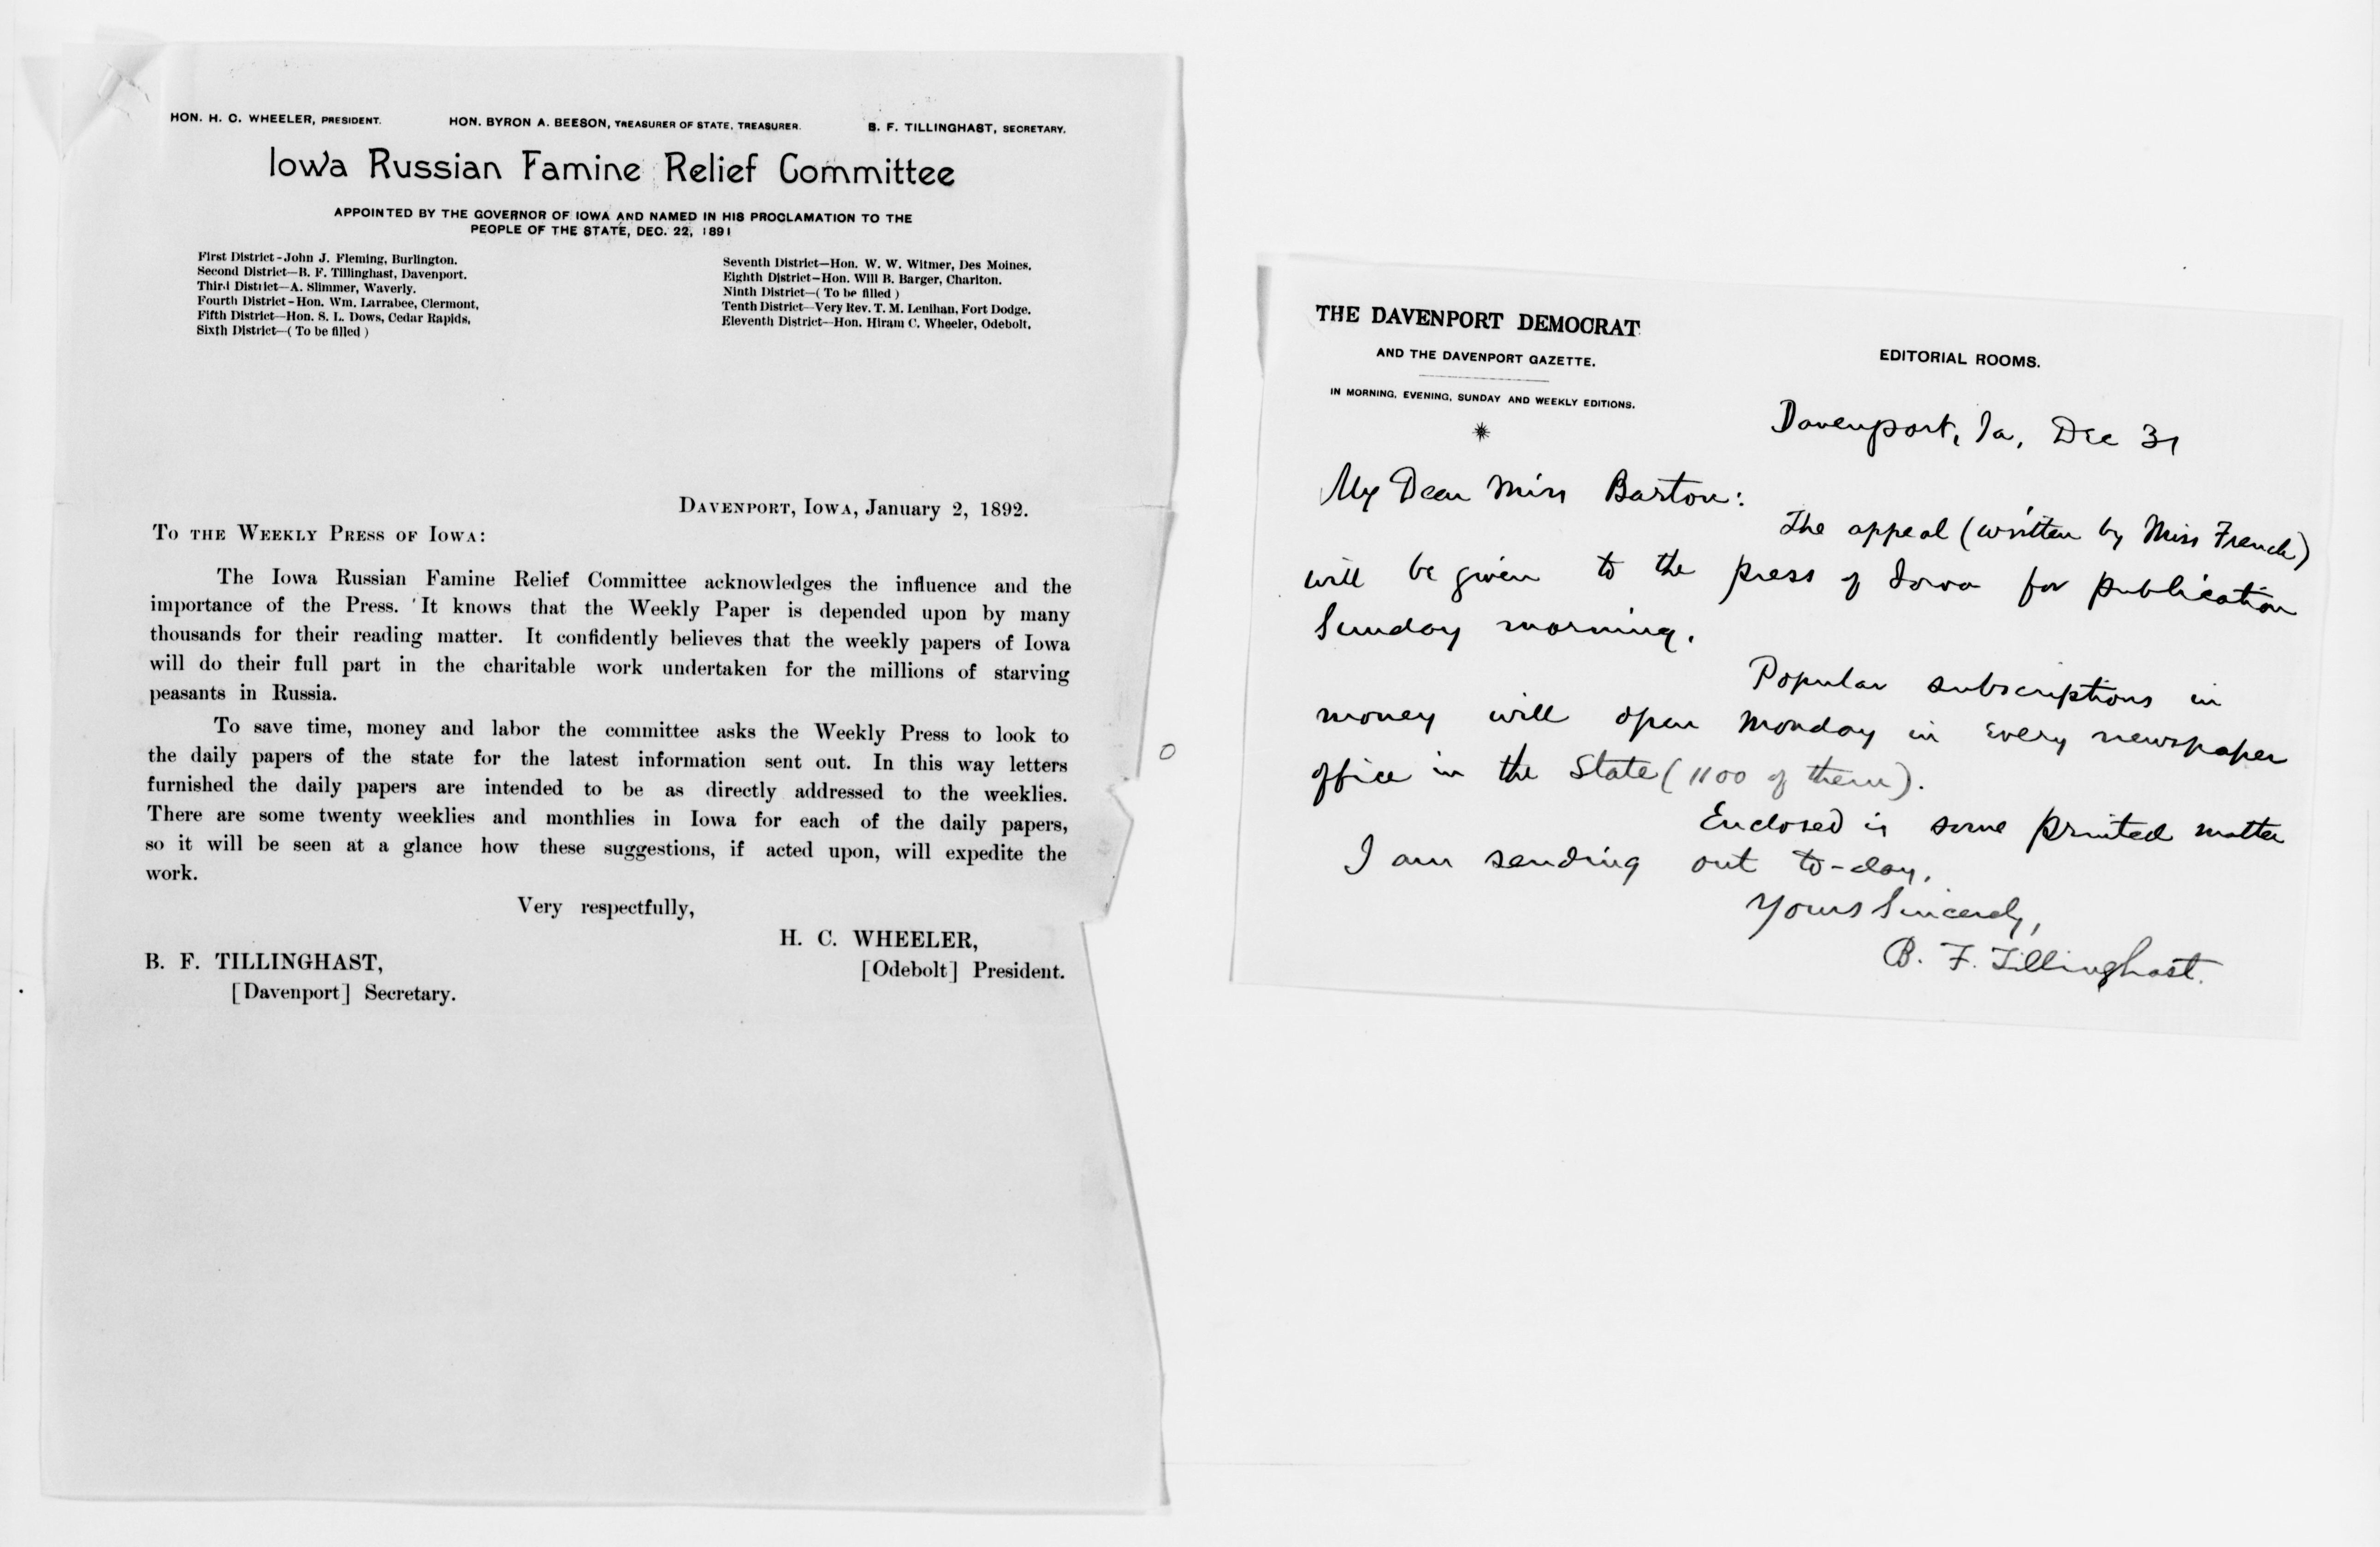 HON. H. C. WHEELER, PRESIDENT. HON. BYRON A. BEESON, TREASURER OF STATE, TREASURER. B. F. TILLINGHAST, SECRETARY.
Iowa Russian Famine Relief Committee
APPOINTED BY THE GOVERNOR OF IOWA AND NAMED IN HIS PROCLAMATION TO THE
PEOPLE OF THE STATE, DEC. 22, 1891
First District-John J. Fleming, Burlington.
Second District—B. F. Tillinghast, Davenport.
Third District—A. Slimmer, Waverly.
Fourth District-Hon. Wm. Larrabee, Clermont,
Fifth District—Hon. S. L. Dows, Cedar Rapids,
Sixth District—( To be filled )
Seventh District—Hon. W. W. Witmer, Des Moines.
Eighth District-Hon. Will B. Barger, Chariton.
Ninth District—( To be filled )
Tenth District—Very Rev. T. M. Lenihan, Fort Dodge.
Eleventh District—Hon. Hiram C. Wheeler, Odebolt.
DAVENPORT, IOWA, January 2, 1892.
TO THE WEEKLY PRESS OF IOWA:
The Iowa Russian Famine Relief Committee acknowledges the influence and the
importance of the Press. It knows that the Weekly Paper is depended upon by many
thousands for their reading matter. It confidently believes that the weekly papers of Iowa
will do their full part in the charitable work undertaken for the millions of starving
peasants in Russia.
To save time, money and labor the committee asks the Weekly Press to look to
the daily papers of the state for the latest information sent out. In this way letters
furnished the daily papers are intended to be as directly addressed to the weeklies.
There are some twenty weeklies and monthlies in Iowa for each of the daily papers,
so it will be seen at a glance how these suggestions, if acted upon, will expedite the
work.
Very respectfully,
H. C. WHEELER,
[Odebolt] President.
B. F. TILLINGHAST,
[Davenport] Secretary.
THE DAVENPORT DEMOCRAT
AND THE DAVENPORT GAZETTE.
IN MORNING, EVENING, SUNDAY AND WEEKLY EDITIONS.
EDITORIAL ROOMS.
Davenport, Ia, Dec 31
My Dear Miss Barton:
The appeal (written by Miss French)
will be given to the press of Iowa for publication
Sunday morning.
Popular subscriptions in
money will open Monday in every newspaper
office in the State (1100 of them).
Enclosed is some printed matter
I am sending out to-day.
Yours Sincerely,
B. F. Tillinghast.